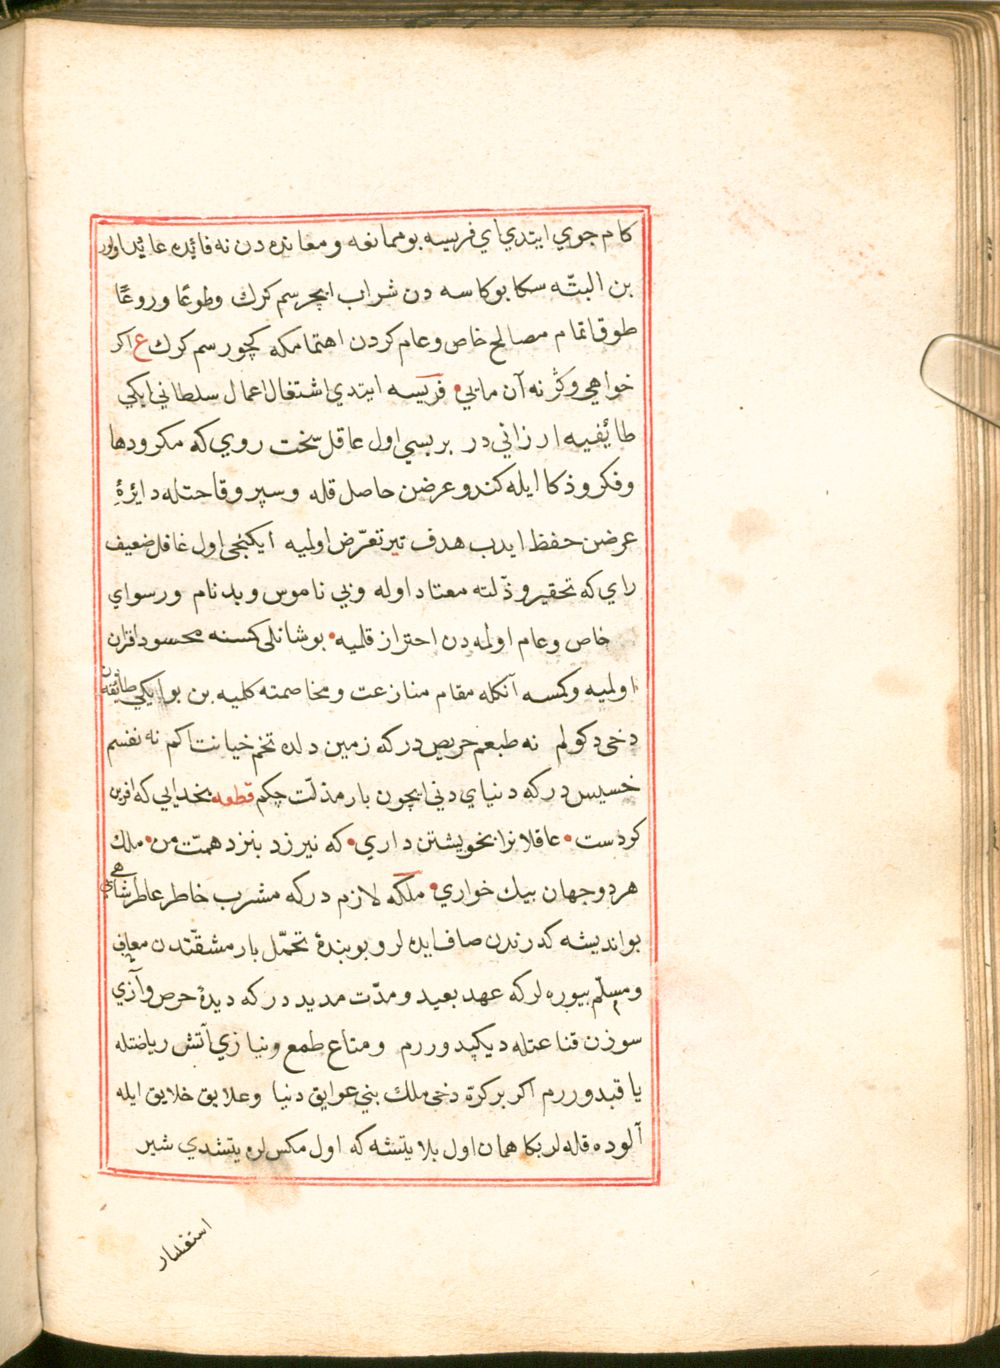 كام جوي ايتدي اي فريسه بو ممانعه و معانده دن نه فائده عائد اولور
بن البتّه سكا بو كاسه دن شراب ايچرسم كرك وطوعًا وروعًا
طوق اتمام مصالح خاص وعام كردن اهتمامكه كچورسم كرك ع اكر
خواهي وكرنه آن مايي • فريسه ايتدي اشتغال اعمال سلطاني ايكي
طائفيه ارزاني در بريسي اول عاقل سخت روي كه مكر ودها
وفكر وذكا ايله كندو عرضن حاصل قله وسپر وقاحتله دايرهٔ
عرضن حفظ ايدب هدف تير تعرّض اولميه ايكنجى اول غافل ضعيف
راي كه تحقير وذلته معتاد اوله وبي ناموس وبدنام ورسواي
خاص وعام اولمه دن احتراز قلميه • بوشانلى كسنه محسود اقران
اولميه وكمسه آنكله مقام منازعت ومخاصمته كلميه بن بو ايكي طائفه دن
دخى دكولم نه طبعم حريص در كه زمين دلده تخم خيانت اكم نه نفسم
خسيس در كه دنياي دني ايچون بار مذلّت چكم قطعه بخدايي كه افرين
كردست • عاقلانرا بخويشتن داري • كه نيرزد بنزد همّت من • ملك
هر دو جهان بيك خواري • ملكه لازم در كه مشرب خاطر عاطر شاهي
بو انديشه كدرندن صاف ايده لر وبو بندهٔ تحمّل بار مشقّتدن معاف
ومسلّم بيوره لر كه عهد بعيد ومدّت مديد در كه ديدهٔ حرص وآزي
سوزن قناعتله ديكپدوررم ومتاع طمع ونيازي آتش رياضتله
ياقبدوررم اكر بر كرّة دخى ملك بني عوايق دنيا وعلايق خلايق ايله
آلوده قله لر بكا همان اول بلا يتشه كه اول مكس لره يتشدي شير
استفسار